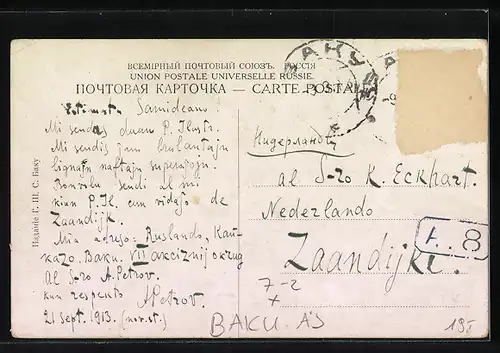 ВСЕМІРНЫЙ ПОЧТОВЫЙ СОЮЗЪ. РОССІЯ
UNION POSTALE UNIVERSELLE RUSSIE.
ПОЧТОВАЯ КАРТОЧКА — CARTE POSTALE
Estimata Samideano!
Mi sendas duan P. Ilustr.
Mi sendis jam brulantajn
lignajn naftajn
Bonvolu sendi al mi
kiun P. Il. kun vidaĵo de
Zaandijk.
Mia adreso: Ruslando, Kaŭ-
kazo. Baku. VII akciznij okrug
al S-ro A. Petrov.
kun respekto APetrov.
21 sept. 1913. (nov. st.)
Изданіе Г. Ш. С. Баку
Нидерланды
al S-ro K. Eckhart.
Nederlando
Zaandijk.
7-2
BAKU AS